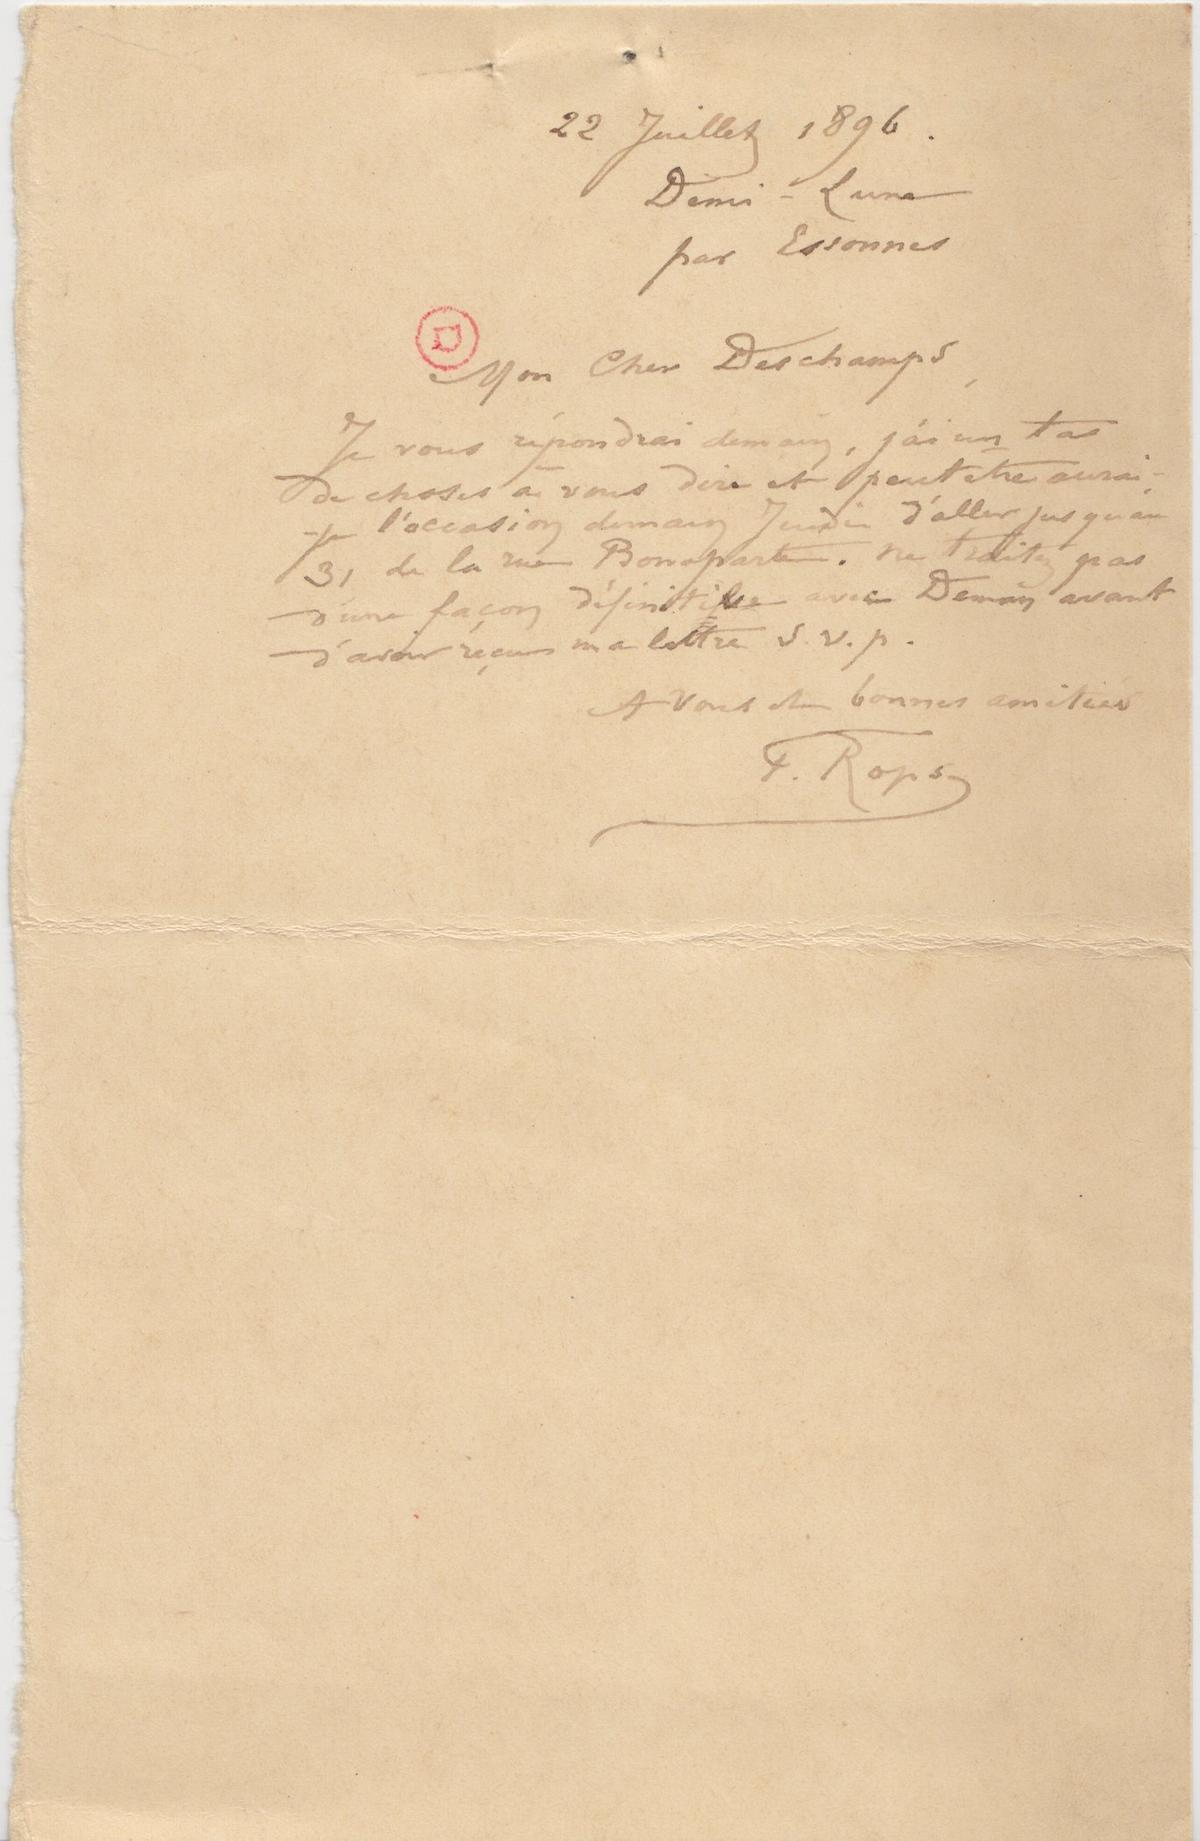 22 Juillet 1896.
Demi-Lune
par Essonnes
Mon Cher Deschamps,
Je vous répondrai demain, j'ai un tas
de choses à vous dire et peut etre aurai-
-je l'occasion demain Jeudi d'aller jusqu'au
31 de la rue Bonaparte. ne traitez pas
d'une façon définitive avec Deman avant
d'avoir reçu ma lettre S.V.p.
A Vous de bonnes amitiés
F. Rops